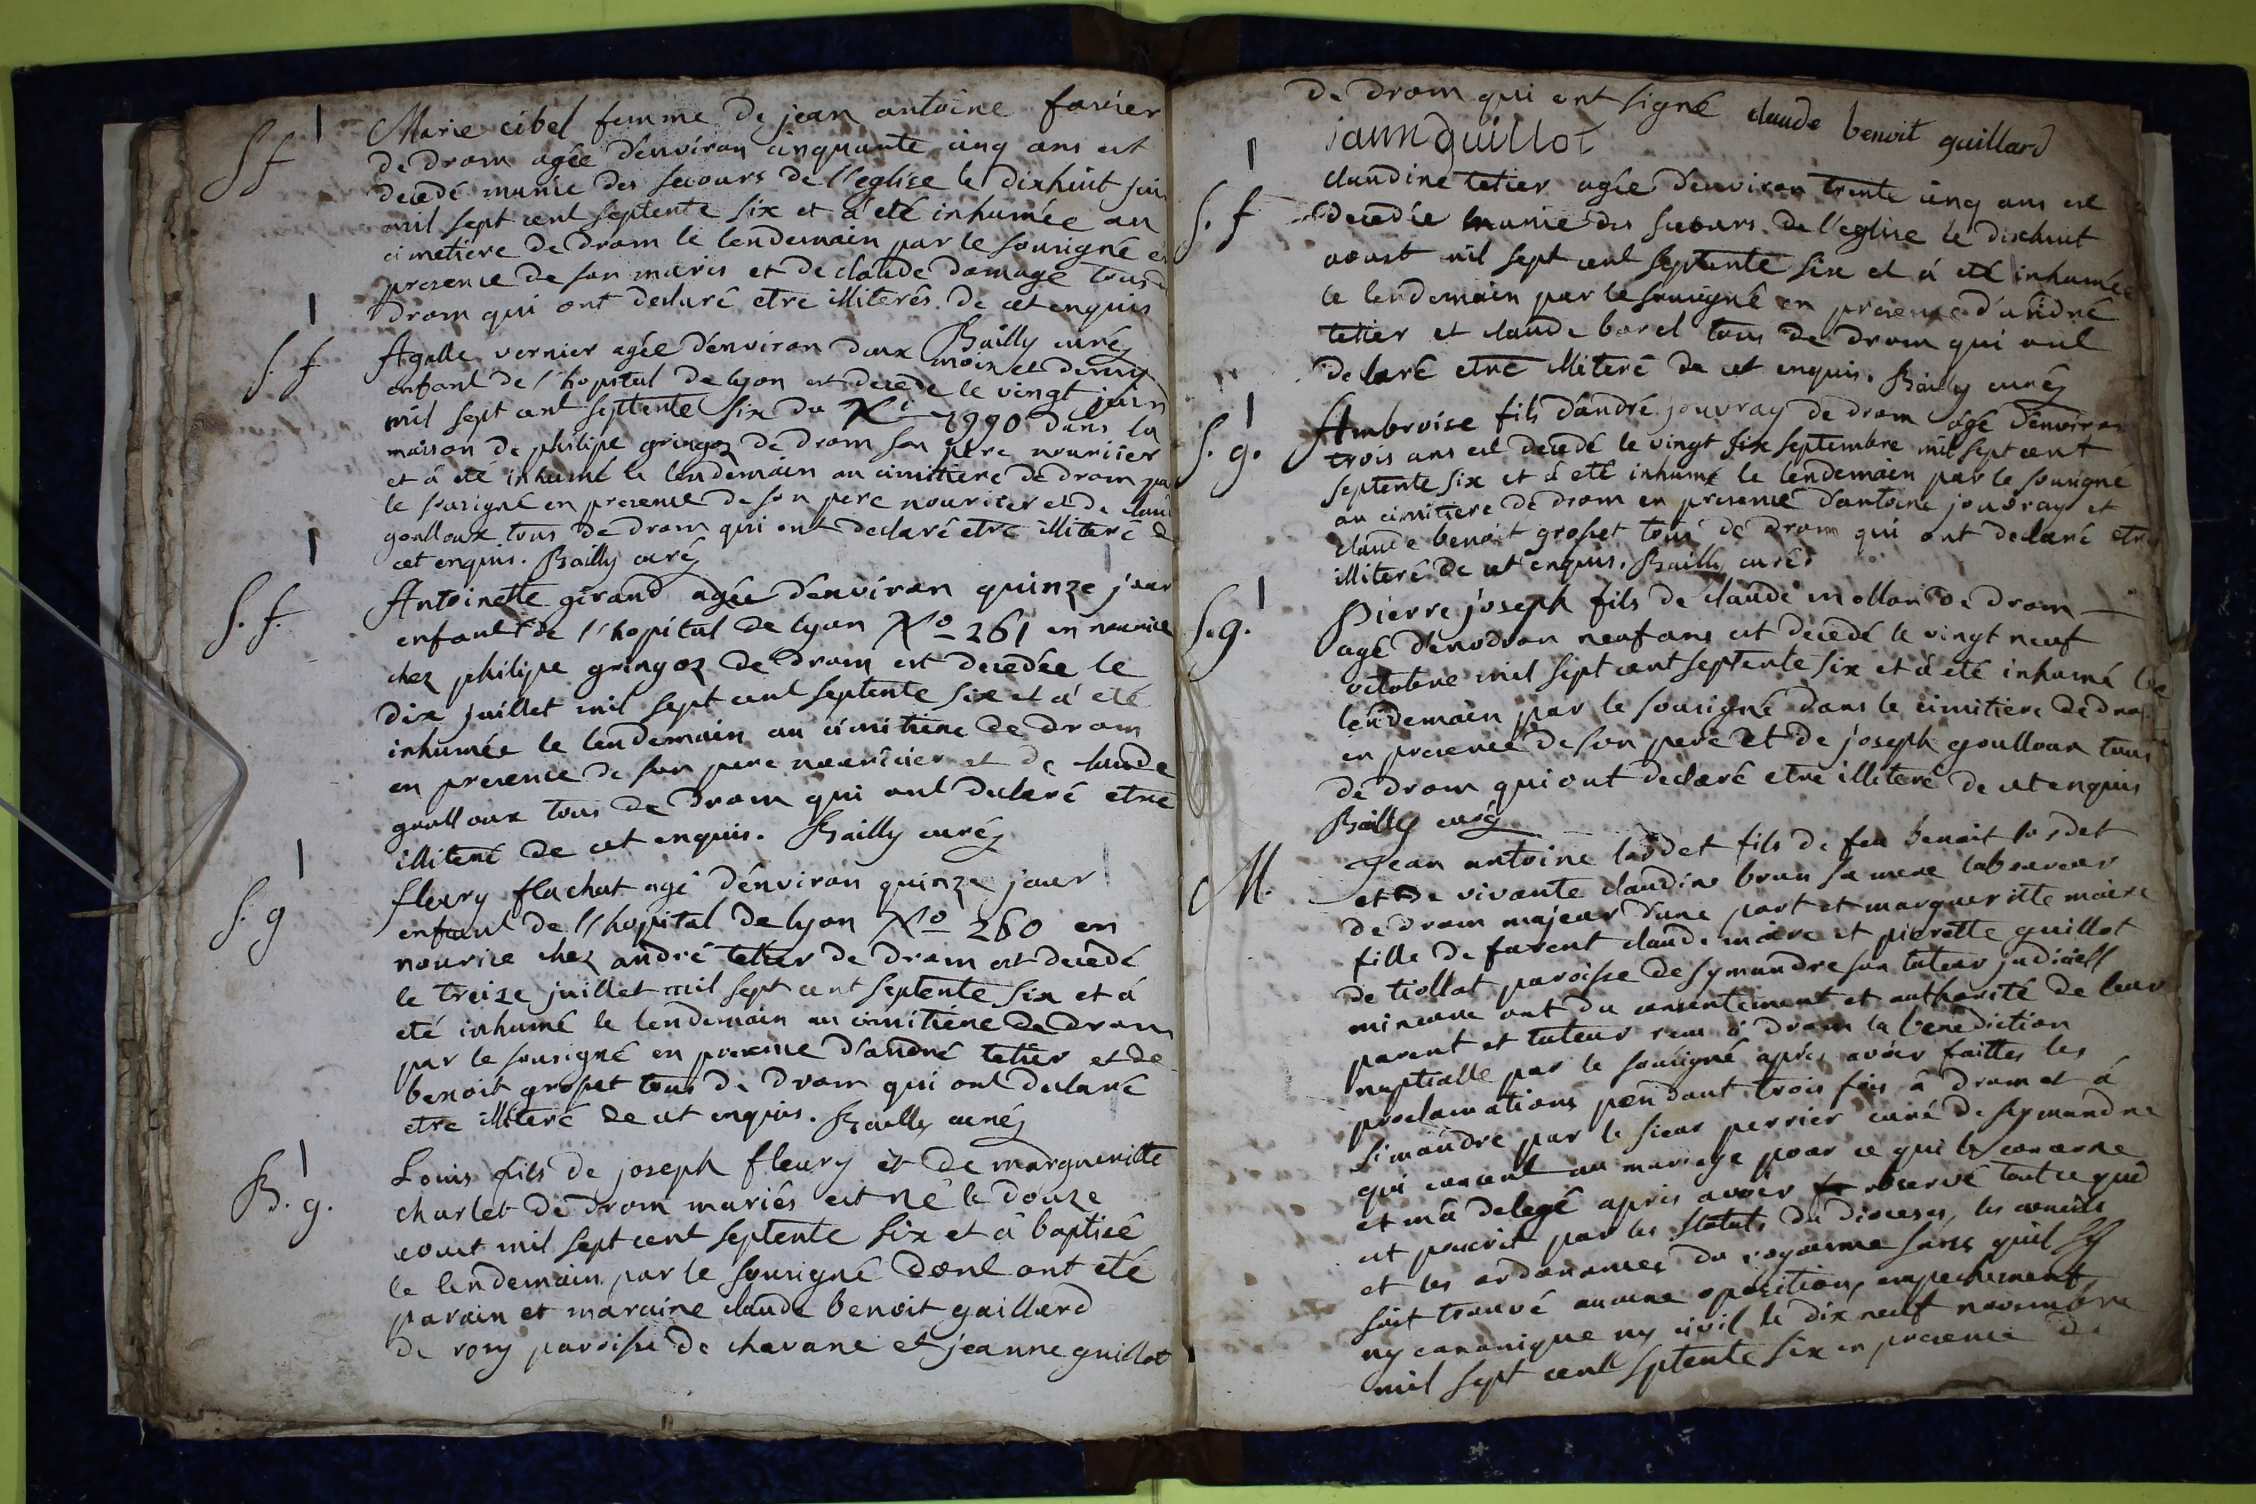 S f Marie cibel femme de jean antoine favier
de drom agée d'environ cinquante cinq ans est
decedé munie des secours de l'eglise le dixhuit juin
mil sept cent septente six et á eté inhumée au
cimetiere de drom le lendemain par le sousigné en
presence de son maris et de claude domage tous de
drom qui ont declaré etre illiterés de cet enquis
Bailly curé
S. f Agatte vernier agée d'environ deux mois et demy
enfant de l'hopital de lyon est decedé le vingt juin
mil sept cent septente six du N° 1990 dans la
maison de philipe gringoz de drom son pere nouricier
et á eté inhumé le lendemain au cimitiere de drom par
le sousigné en presence de son pere nouricier et de claude
goulloux tous de drom qui ont declaré etre illiteré de
cet enquis. Bailly curé
S. f. Antoinette girand agée d'environ quinze jour
enfant de l'hopital de lyon N° 261 en nourice
chez philipe gringoz de drom est decedée le
dix juillet mil sept cent septente six et a' eté
inhumée le lendemain au cimitiere de drom
en presence de son pere nouricier et de claude
goulloux tous de drom qui ont declaré etre
illiteré de cet enquis. Bailly curé
S. g fleury flachat agé d'environ quinze jour
enfant de l'hopital de lyon N° 260 en
nourice chez andré tetier de drom est decedé
le treize juillet mil sept cent septente six et á
eté inhumé le lendemain au cimitiere de drom
par le sousigné en presence d'andré tetier et de
benoit grosset tous de drom qui ont declaré
etre illiteré de cet enquis. Bailly curé
B. g. Louis fils de joseph fleury et de margueritte
charlet de drom mariés est né le douze
aout mil sept cent septente six et á baptisé
le lendemain par le sousigné dont ont eté
parain et maraine claude benoit gaillard
de rosy paroisse de chavane et jeanne guillot
de drom qui ont signé claude benoit gaillard
jaunn guillot
S. f claudine tetier agée d'environ trente cinq ans est
decedée munie des secours de l'eglise le dixhuit
aoust mil sept cent septente six et á eté inhumée
le lendemain par le sousigné en presence d'andré
tetier et claude borel tous de drom qui ont
declaré etre illiteré de cet enquis. Bailly curé
S. g. Ambroise fils d'andré jouvray de drom agé d'environ
trois ans est decedé le vingt six septembre mil sept cent
septente six et á eté inhumé le lendemain par le sousigné
au cimitiere de drom en presence d'antoine jouvray et
claude benoit grosset tous de drom qui ont declaré etre
illiteré de cet enquis. Bailly curé
S. g. Pierre joseph fils de claude mollon de drom
agé d'environ neuf ans est decedé le vingt neuf
octobre mil sept cent septente six et á eté inhumé le
lendemain par le sousigné dans le cimitiere de drom
en presence de son pere et de joseph goulloux tous
de drom qui ont declaré etre illiteré de cet enquis
Bailly curé
M. Jean antoine lordet fils de feu benoit lordet
et de vivante claudine brun sa mere laboureur
de drom majeur d'une part et margueritte maire
fille de furent claude maire et pierette guillot
de tiollot paroisse de symandre son tuteur judiciell
mineure ont du consentement et authorité de leur
parent et tuteur reçu á drom la benediction
nuptialle par le sousigné aprés avoir faittes les
proclamations pendant trois fois á drom et á
simandre par le sieur perrier curé de symandre
qui consent au mariage pour ce qui le concerne
et m'á delegé aprés avoir observé tout ce que
est prescrit par les statuts du dioceses, les conciles
et les ordonances du royaume sans qu'il s'y
soit trouvé aucune oposition, empechement
ny canonique ny civil le dix neuf novembre
mil sept cent sptente six en presence de